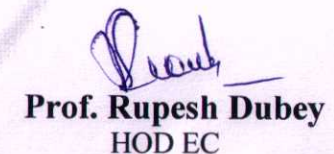 Prof. Rupesh Dubey
HOD EC